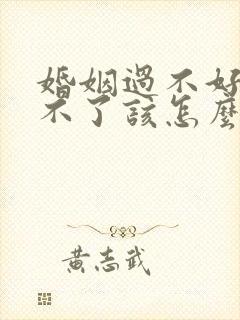 婚姻過不好
不了該怎麼
黃志武